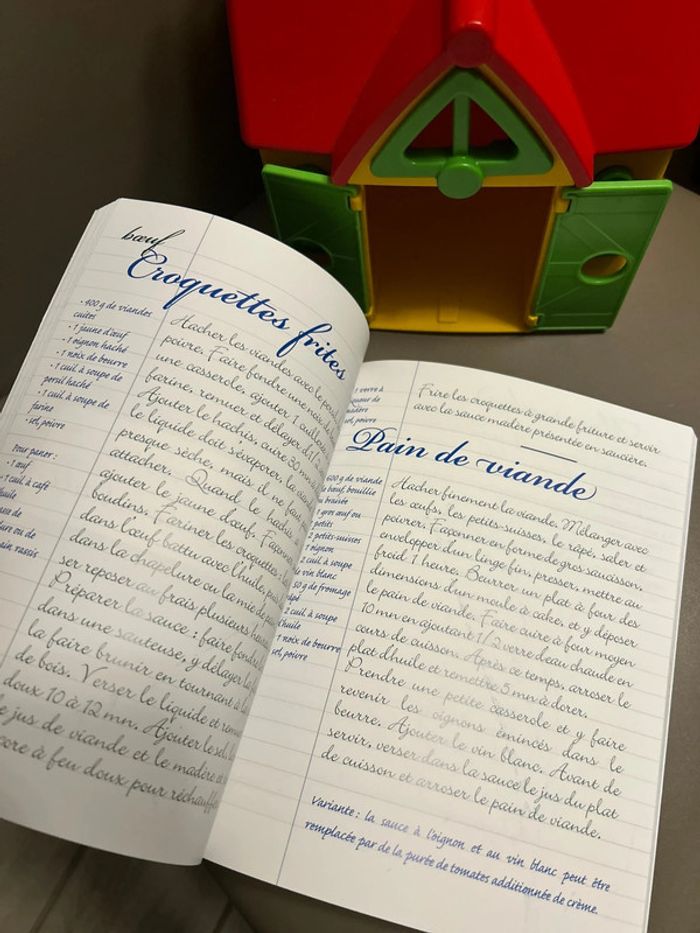 bœuf
Croquettes frites
• 400 g de viandes
cuites
• 1 jaune d'œuf
• 1 oignon haché
• 1 noix de beurre
• 1 cuil. à soupe de
persil haché
• 1 cuil. à soupe de
farine
• sel, poivre
Pour paner :
• 1 œuf
• 1 cuil. à café
ure ou de
ain rassis
Hacher les viandes avec le persil
poivre. Faire fondre une noix de
une casserole, ajouter 1 cuillerée
farine, remuer et délayer d'1/2
Ajouter le hachis, cuire 30 mn à
le liquide doit s'évaporer, la
presque sèche, mais il ne faut
attacher. Quand le hachis
ajouter le jaune d'œuf. Façonner
boudins. Fariner les croquettes
dans l'œuf battu avec l'huile, puis
dans la chapelure ou la mie de
ser reposer au frais plusieurs
Préparer la sauce : faire fondre
dans une sauteuse, y délayer la
la faire brunir en tournant à
de bois. Verser le liquide et
doux 10 à 12 mn. Ajouter le sel,
jus de viande et le madère
ore à feu doux pour réchauffer
1 verre à
iqueur de
madère
sel, poivre
Frire les croquettes à grande friture et servir
avec la sauce madère présentée en saucière.
Pain de viande
600 g de viande
de bœuf, bouillie
ou braisée
gros œuf ou
petits
2 petits-suisses
1 oignon
2 cuil. à soupe
de vin blanc
50 g de fromage
râpé
2 cuil. à soupe
d'huile
1 noix de beurre
sel, poivre
Hacher finement la viande. Mélanger avec
les œufs, les petits-suisses, le râpé, saler et
poivrer. Façonner en forme de gros saucisson,
envelopper d'un linge fin, presser, mettre au
froid 1 heure. Beurrer un plat à four des
dimensions d'un moule à cake, et y déposer
le pain de viande. Faire cuire à four moyen
10 mn en ajoutant 1/2 verre d'eau chaude en
cours de cuisson. Après ce temps, arroser le
plat d'huile et remettre 5 mn à dorer.
Prendre une petite casserole et y faire
revenir les oignons émincés dans le
beurre. Ajouter le vin blanc. Avant de
servir, verser dans la sauce le jus du plat
de cuisson et arroser le pain de viande.
Variante : la sauce à l'oignon et au vin blanc peut être
remplacée par de la purée de tomates additionnée de crème.